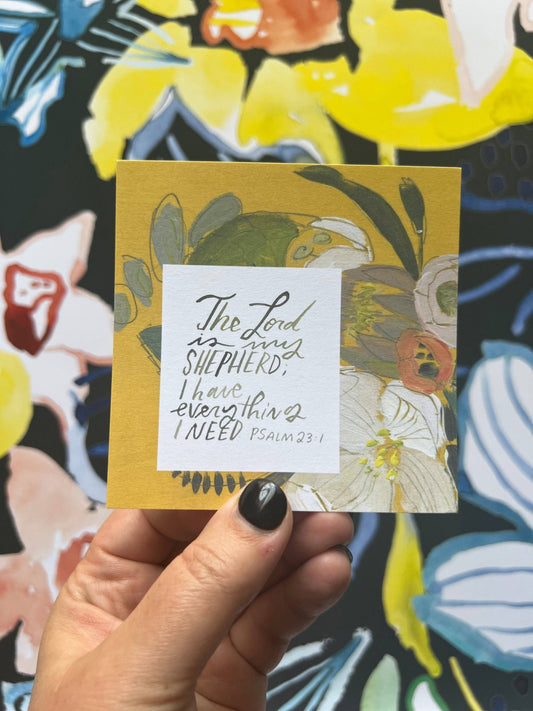 The Lord
is my
SHEPHERD;
I have
everything
I NEED PSALM 23:1